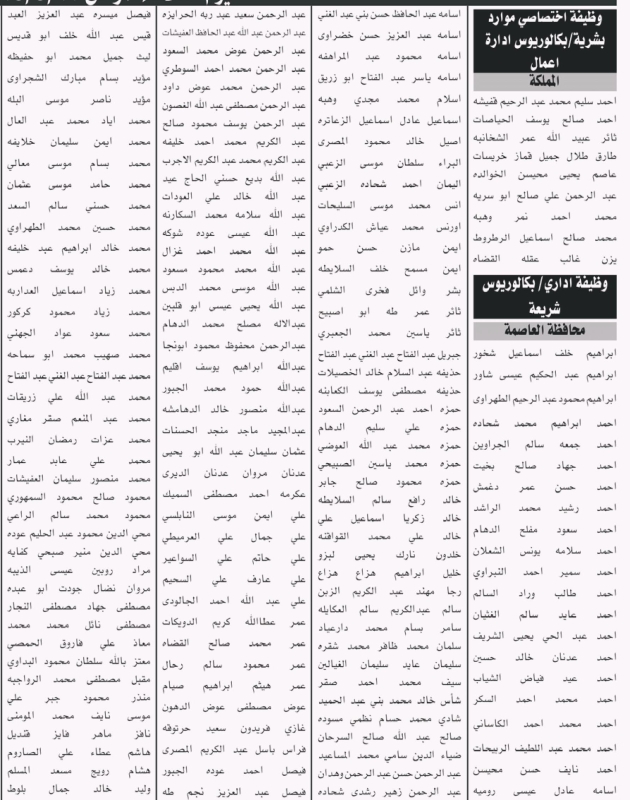 وظيفة اختصاصي موارد
بشرية/بكالوريوس ادارة
اعمال
المملكة
احمد سليم محمد عبد الرحيم قفيشه
احمد صالح يوسف الحياصات
ثائر عبيد الله عمر الشخانبه
طارق طلال جميل قماز خريسات
عاصم يحيى محيسن الخوالده
عبد الرحمن علي صالح ابو سريه
محمد احمد نمر وهبه
محمد صالح اسماعيل الرطروط
يزن غالب عقله القضاه
وظيفة اداري/ بكالوريوس
شريعة
محافظة العاصمة
ابراهيم خلف اسماعيل شخور
ابراهيم عبد الحكيم عيسى شاور
ابراهيم محمود عبد الرحيم الطهراوي
احمد ابراهيم محمد شحاده
احمد جمعه سالم الجراوين
احمد جهاد صالح بخيت
احمد حسن عمر دغمش
احمد رشيد محمد الراشد
احمد سعود مفلح الدهام
احمد سلامه يونس الشعلان
احمد سمير احمد النبراوي
احمد طالب وراد السالم
احمد عايد سالم الغثيان
احمد عبد الحي يحيى الشريف
احمد عدنان خالد حسين
احمد عيد فياض الشياب
احمد محمد احمد السكر
احمد محمد احمد الكاساني
احمد محمد عبد اللطيف الربيحات
احمد نايف حسن محيسن
اسامه عادل عيسى روميه
اسامه عبد الحافظ حسن بني عبد الغني
اسامه عبد العزيز حسن خضراوى
اسامه محمود عبد المراهفه
اسامه ياسر عبد الفتاح ابو زريق
اسلام محمد مجدي وهبه
اسماعيل عادل اسماعيل الزعاتره
اصيل خالد محمود المصرى
البراء سلطان موسى الزعبي
اليمان احمد شحاده الزعبي
انس محمد موسى السليحات
اورنس محمد عياش الكدراوي
ايمن مازن حسن حمو
ايمن مسمح خلف السلايطه
بشر وائل فخرى الشلمي
ثائر عمر طه ابو اصبيح
ثائر ياسين محمد الجعبري
جبريل عبد الفتاح عبد الغني عبد الفتاح
حذيفه عبد السلام خالد الخصيلات
حذيفه مصطفى يوسف الكعابنه
حمزه احمد عبد الرحمن السعود
حمزه علي سليم الدهام
حمزه محمد عبد الله العوضي
حمزه محمد ياسين الصبيحي
حمزه محمود صالح جابر
خالد رافع سالم السلايطه
خالد زكريا اسماعيل علي
خالد علي محمد القواقنه
خلدون نارك يحيى لبزو
خليل ابراهيم هزاع هزاع
رجا مهند عبد الكريم الزبن
سالم عبدالكريم سالم العكايله
سامر بسام محمد دارعباد
سلمان محمد ظافر محمد شقره
سليمان عايد سليمان الغيالين
سيف محمد احمد صقر
شأس خالد محمد بني عبد الحميد
شادي محمد حسام نظمي مسوده
صالح عبد الله صالح السرحان
ضياء الدين سامي محمد المساعيد
عبد الرحمن حسن عبد الرحمن وهدان
عبد الرحمن زهير رشدى شحاده
عبد الرحمن سعيد عبد ربه الحرايزه
عبد الرحمن عبد الله عبد الحافظ العفيشات
عبد الرحمن عوض محمد السعود
عبد الرحمن محمد احمد السوطري
عبد الرحمن محمد عوض داود
عبد الرحمن مصطفى عبد الله الغصون
عبد الرحمن يوسف محمود صالح
عبد الكريم محمد احمد خليفه
عبد الكريم محمد عبد الكريم الاجرب
عبد الله بديع حسني الحاج عيد
عبد الله خالد علي العودات
عبد الله سلامه محمد السكارنه
عبد الله عيسى عوده شوكه
عبد الله محمد احمد غزال
عبد الله محمد محمود مسعود
عبد الله موسى محمد الدبس
عبد الله يحيى عيسى ابو قلبين
عبدالاله مصلح محمد الدهام
عبدالرحمن محفوظ محمود ابونجا
عبدالله ابراهيم يوسف اقليم
عبدالله حمود محمد الجبور
عبدالله منصور خالد الدهامشه
عبدالمجيد ماجد منجد الحسنات
عثمان سليمان عبد الله ابو يحيى
عدنان مروان عدنان الديرى
عكرمه احمد مصطفى السميك
علي ايمن موسى النابلسي
علي جمال علي العرميطي
علي حاتم علي السواعير
علي عارف علي السحيم
علي عبد الله احمد الجالودى
عمر عطاالله كريم الدويكات
عمر محمد صالح القضاه
عمر محمود سالم رحال
عمر هيثم ابراهيم صيام
عوض مصطفى عوض الدهون
غازي فريدون سعيد حرتوقه
فراس باسل عبد الكريم المصرى
فيصل احمد عوده الجبور
فيصل عبد العزيز نجم طه
فيصل ميسره عبد العزيز العيد
قيس عبد الله خلف ابو قديس
ليث جميل محمد ابو حفيظه
مؤيد بسام مبارك الشجراوى
مؤيد ناصر موسى البله
محمد اياد محمد عبد العال
محمد ايمن سليمان خلايفه
محمد بسام موسى معالي
محمد حامد موسى عثمان
محمد حسني سالم السعد
محمد حسين محمد الطهراوي
محمد خالد ابراهيم عبد خليفه
محمد خالد يوسف دعمس
محمد زياد اسماعيل العداربه
محمد زياد محمود كركور
محمد سعود عواد الجهني
محمد صهيب محمد ابو سماحه
محمد عبد الفتاح عبد الغني عبد الفتاح
محمد عبد الله علي زريقات
محمد عبد المنعم صقر مغاري
محمد عزات رمضان النيرب
محمد علي عابد عمار
محمد منصور سليمان العفيشات
محمود صالح محمود السمهوري
محمود محمد سالم الراعي
محي الدين محمود عبد الحليم عوده
محي الدين منير صبحي كفايه
مراد روبين عيسى الذيبه
مروان نضال جودت ابو عبده
مصطفى جهاد مصطفى النجار
مصطفى نائل محمد محمد
معاذ علي فاروق الحمصي
معتز بالله سلطان محمود البداوي
مقبل مصطفى محمد الرواجبه
منذر محمود جبر علي
موسى نايف محمد المومنى
نافز ماهر فايز قنديل
هاشم عطاء علي الصاروم
هشام رويج مسعد المسلم
وليد خالد جمال بلوط